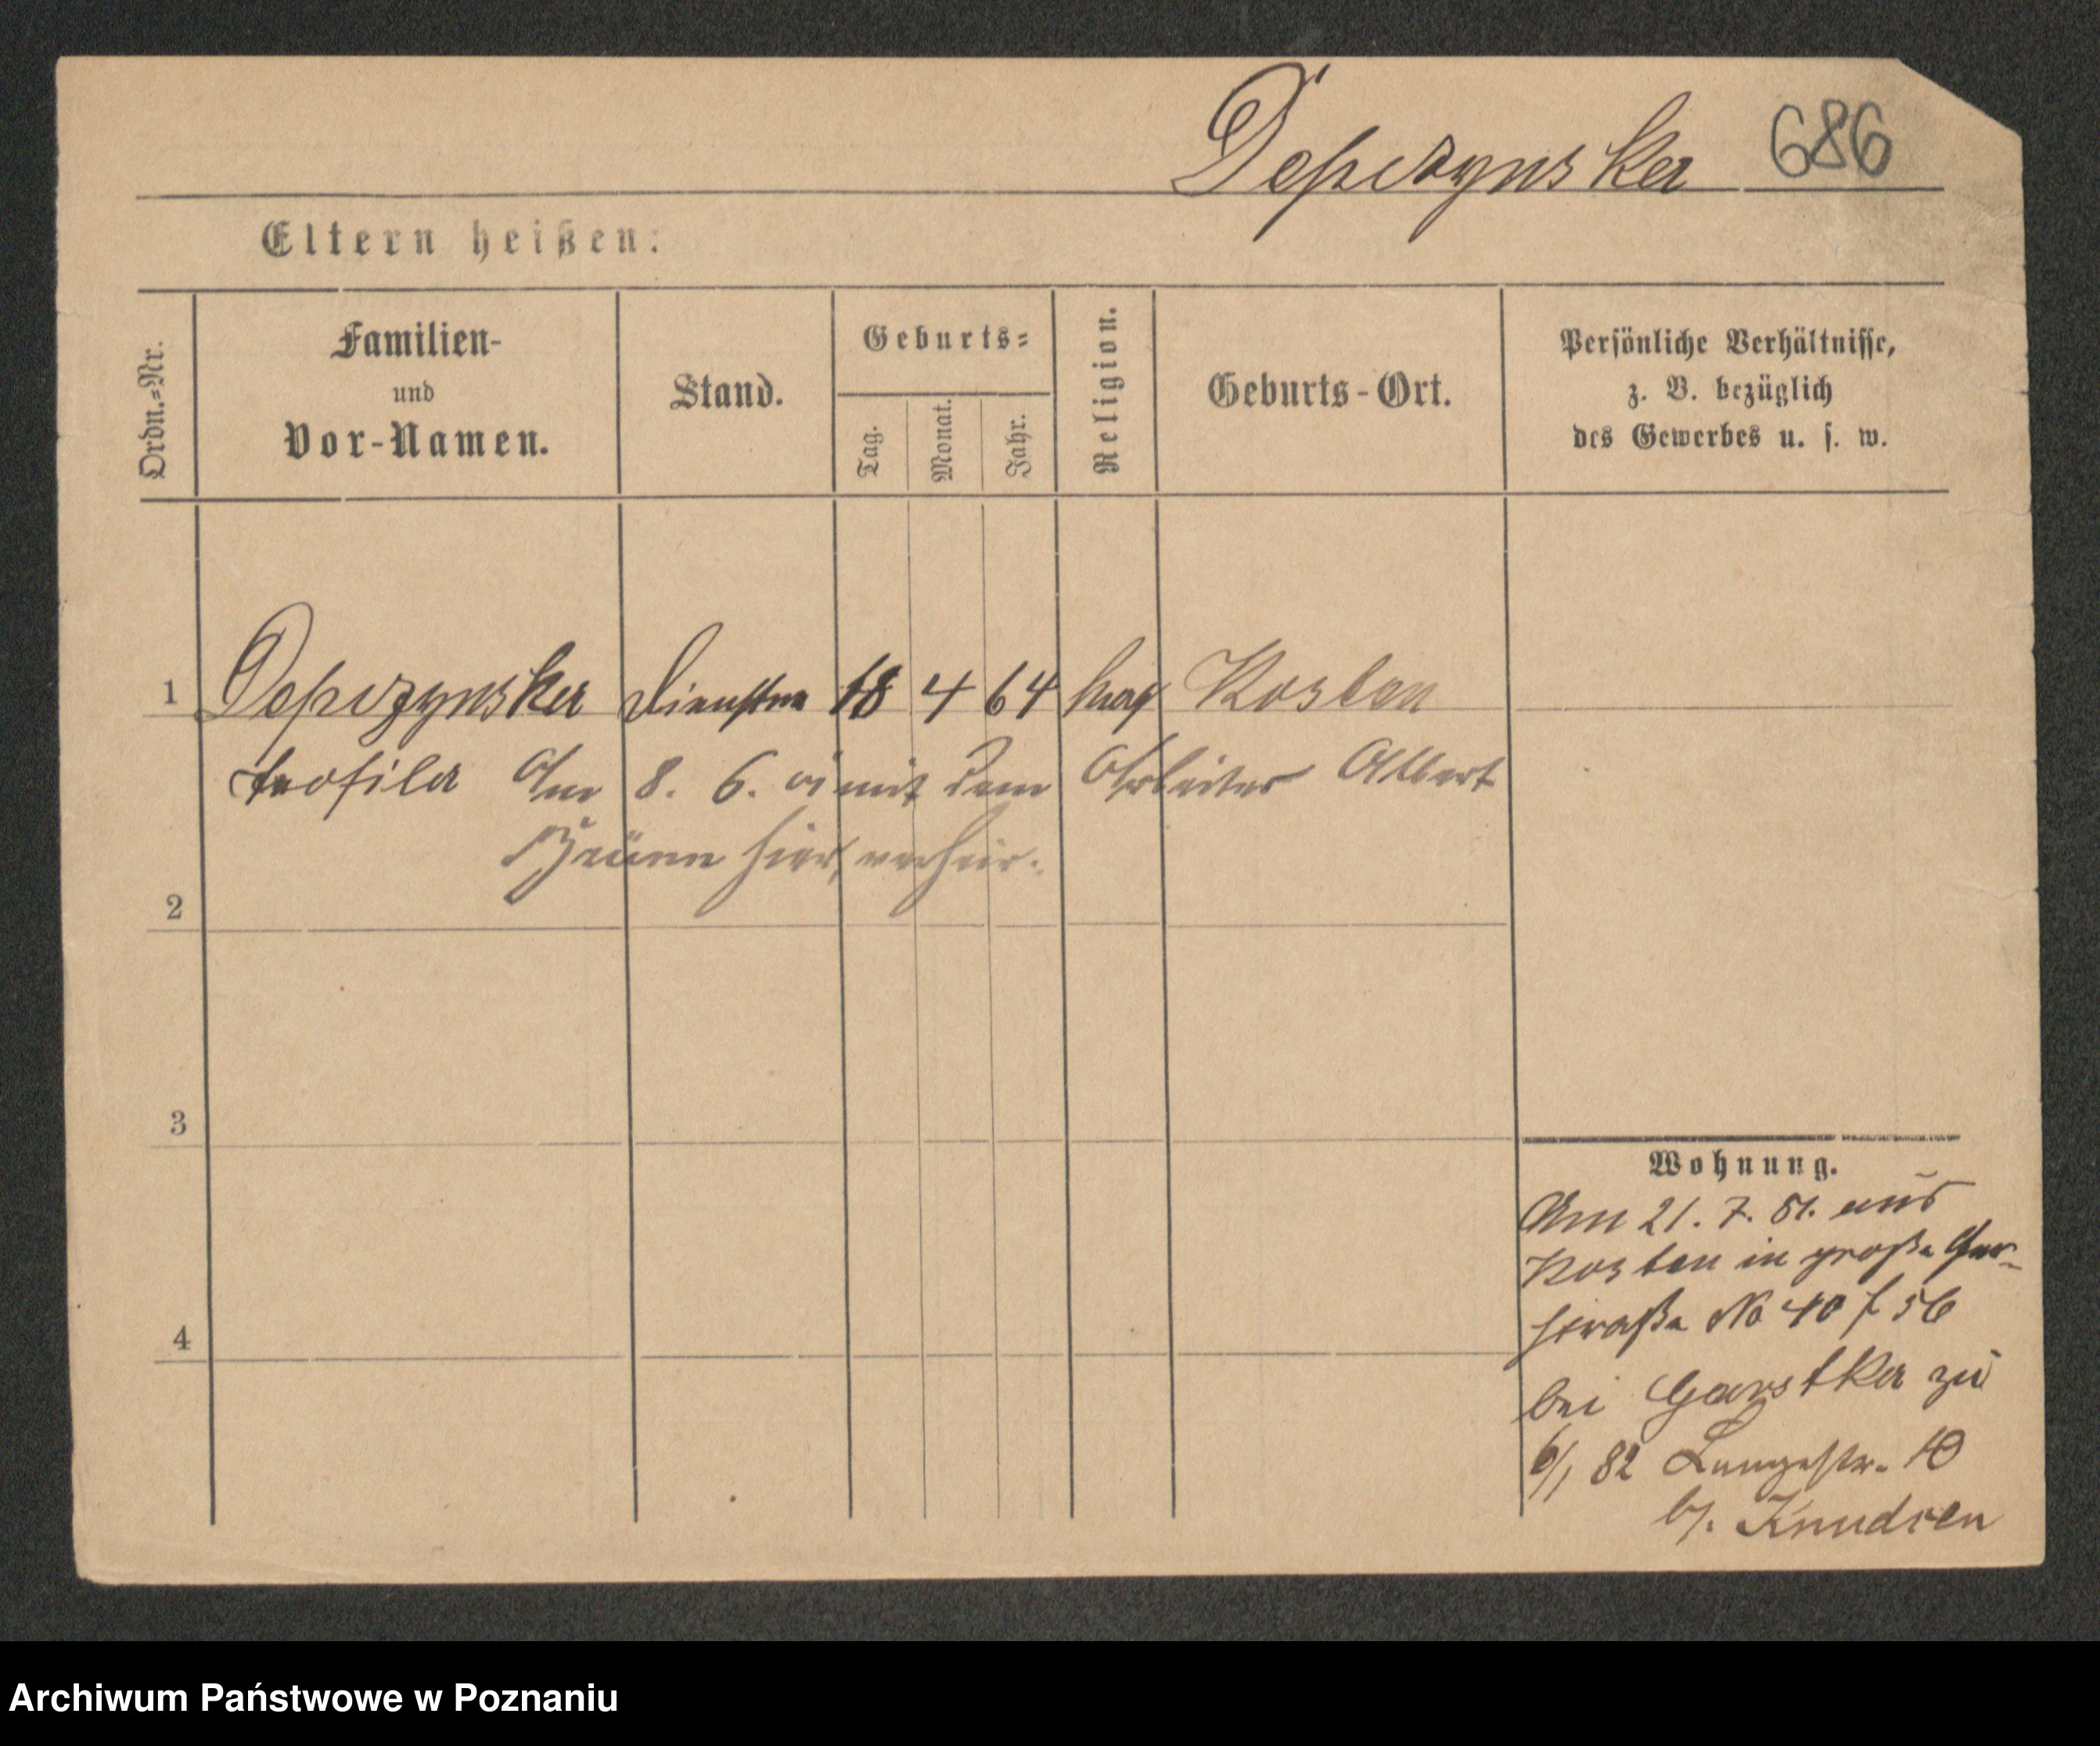 Depczynska 686
Eltern heißen:
Ordn.=Nr.
Familien-
und
Vor-Namen.
Stand.
Geburts=
Tag.
Monat.
Jahr.
Religion.
Geburts-Ort.
Persönliche Verhältnisse,
z. B. bezüglich
des Gewerbes u. s. w.
1 Depczynska 18 4 64 Kosten
Teofila Am 8. 6. mit dem Arbeiter Albert
hier, verheir.
2
3
4
Wohnung.
Am 21. 7. 81. aus
Kosten in große Ger-
straße No 40 f 56
bei Garstka zu
6/1 82 Langestr. 10
b/. Knudsen
Archiwum Państwowe w Poznaniu